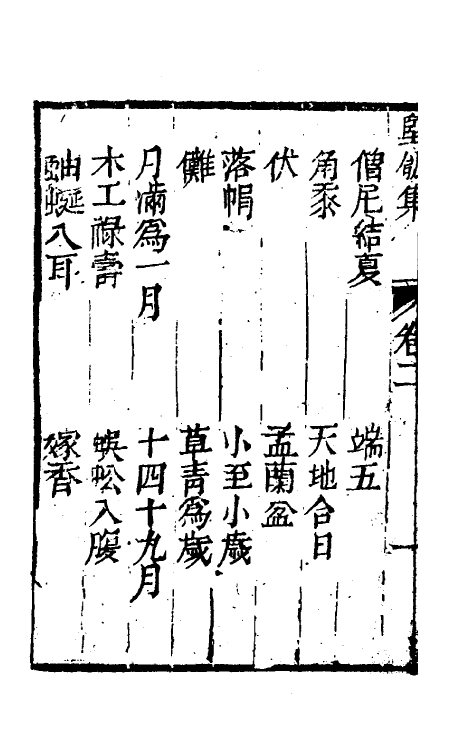 堅瓠集 卷二 一
僧尼結夏 端五
角黍 天地合日
伏 盂蘭盆
落帽 小至小歲
儺 草青為歲
月滿為一月 十四十九月
木工祿壽 蜈蚣入腹
蚰蜒入耳 嫁杏